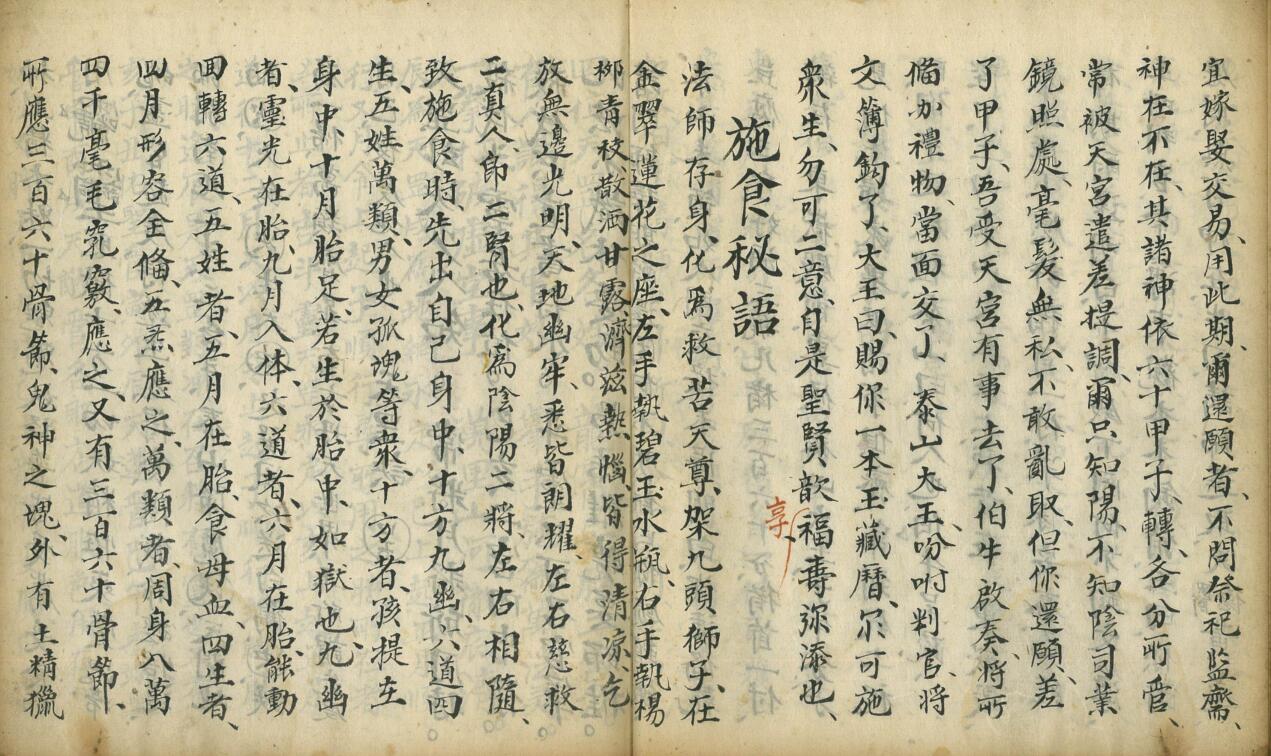 宜嫁娶交易、用此期、爾還願者、不問祭祀監齋、
神在不在、其諸神依六十甲子、轉、各分所管、
常被天宮遣差提調、爾只知陽、不知陰司業
鏡照處、毫髮無私、不敢亂取、但你還願、差
了甲子、吾受天宮有事去了、伯牛啟奏、將所
俻办禮物、當面交了、曰泰山大王、吩咐判官、將
文簿鈎了、大王曰、賜你一本玉藏曆、尔可施
衆生、勿可二意、自是聖賢歆福壽弥添也、
享
施食秘語
法師存身、化爲救苦天尊、架九頭獅子、在
金翠蓮花之座、左手執碧玉水瓶、右手執楊
柳青枝、散洒甘露、濟兹熱惱、皆得清凉、乞
放無邊光明、天地幽牢、悉皆朗耀、左右慈救
二真人、即二腎也、化爲陰陽二將、左右相隨、
致施食時、先出自己身中、十方九幽、六道四
生、五姓萬類、男女孤魂等衆、十方者、孩提在
身中、十月胎足、若生於胎中、如獄也、九幽
者、靈光在胎、九月入体、六道者、六月在胎、能動
回轉六道、五姓者、五月在胎、食母血、四生者、
四月形容全俻、五炁應之、萬類者、周身八萬
四千毫毛乳竅、應之、又有三百六十骨節、
所應三百六十骨節、鬼神之塊、外有土精獵